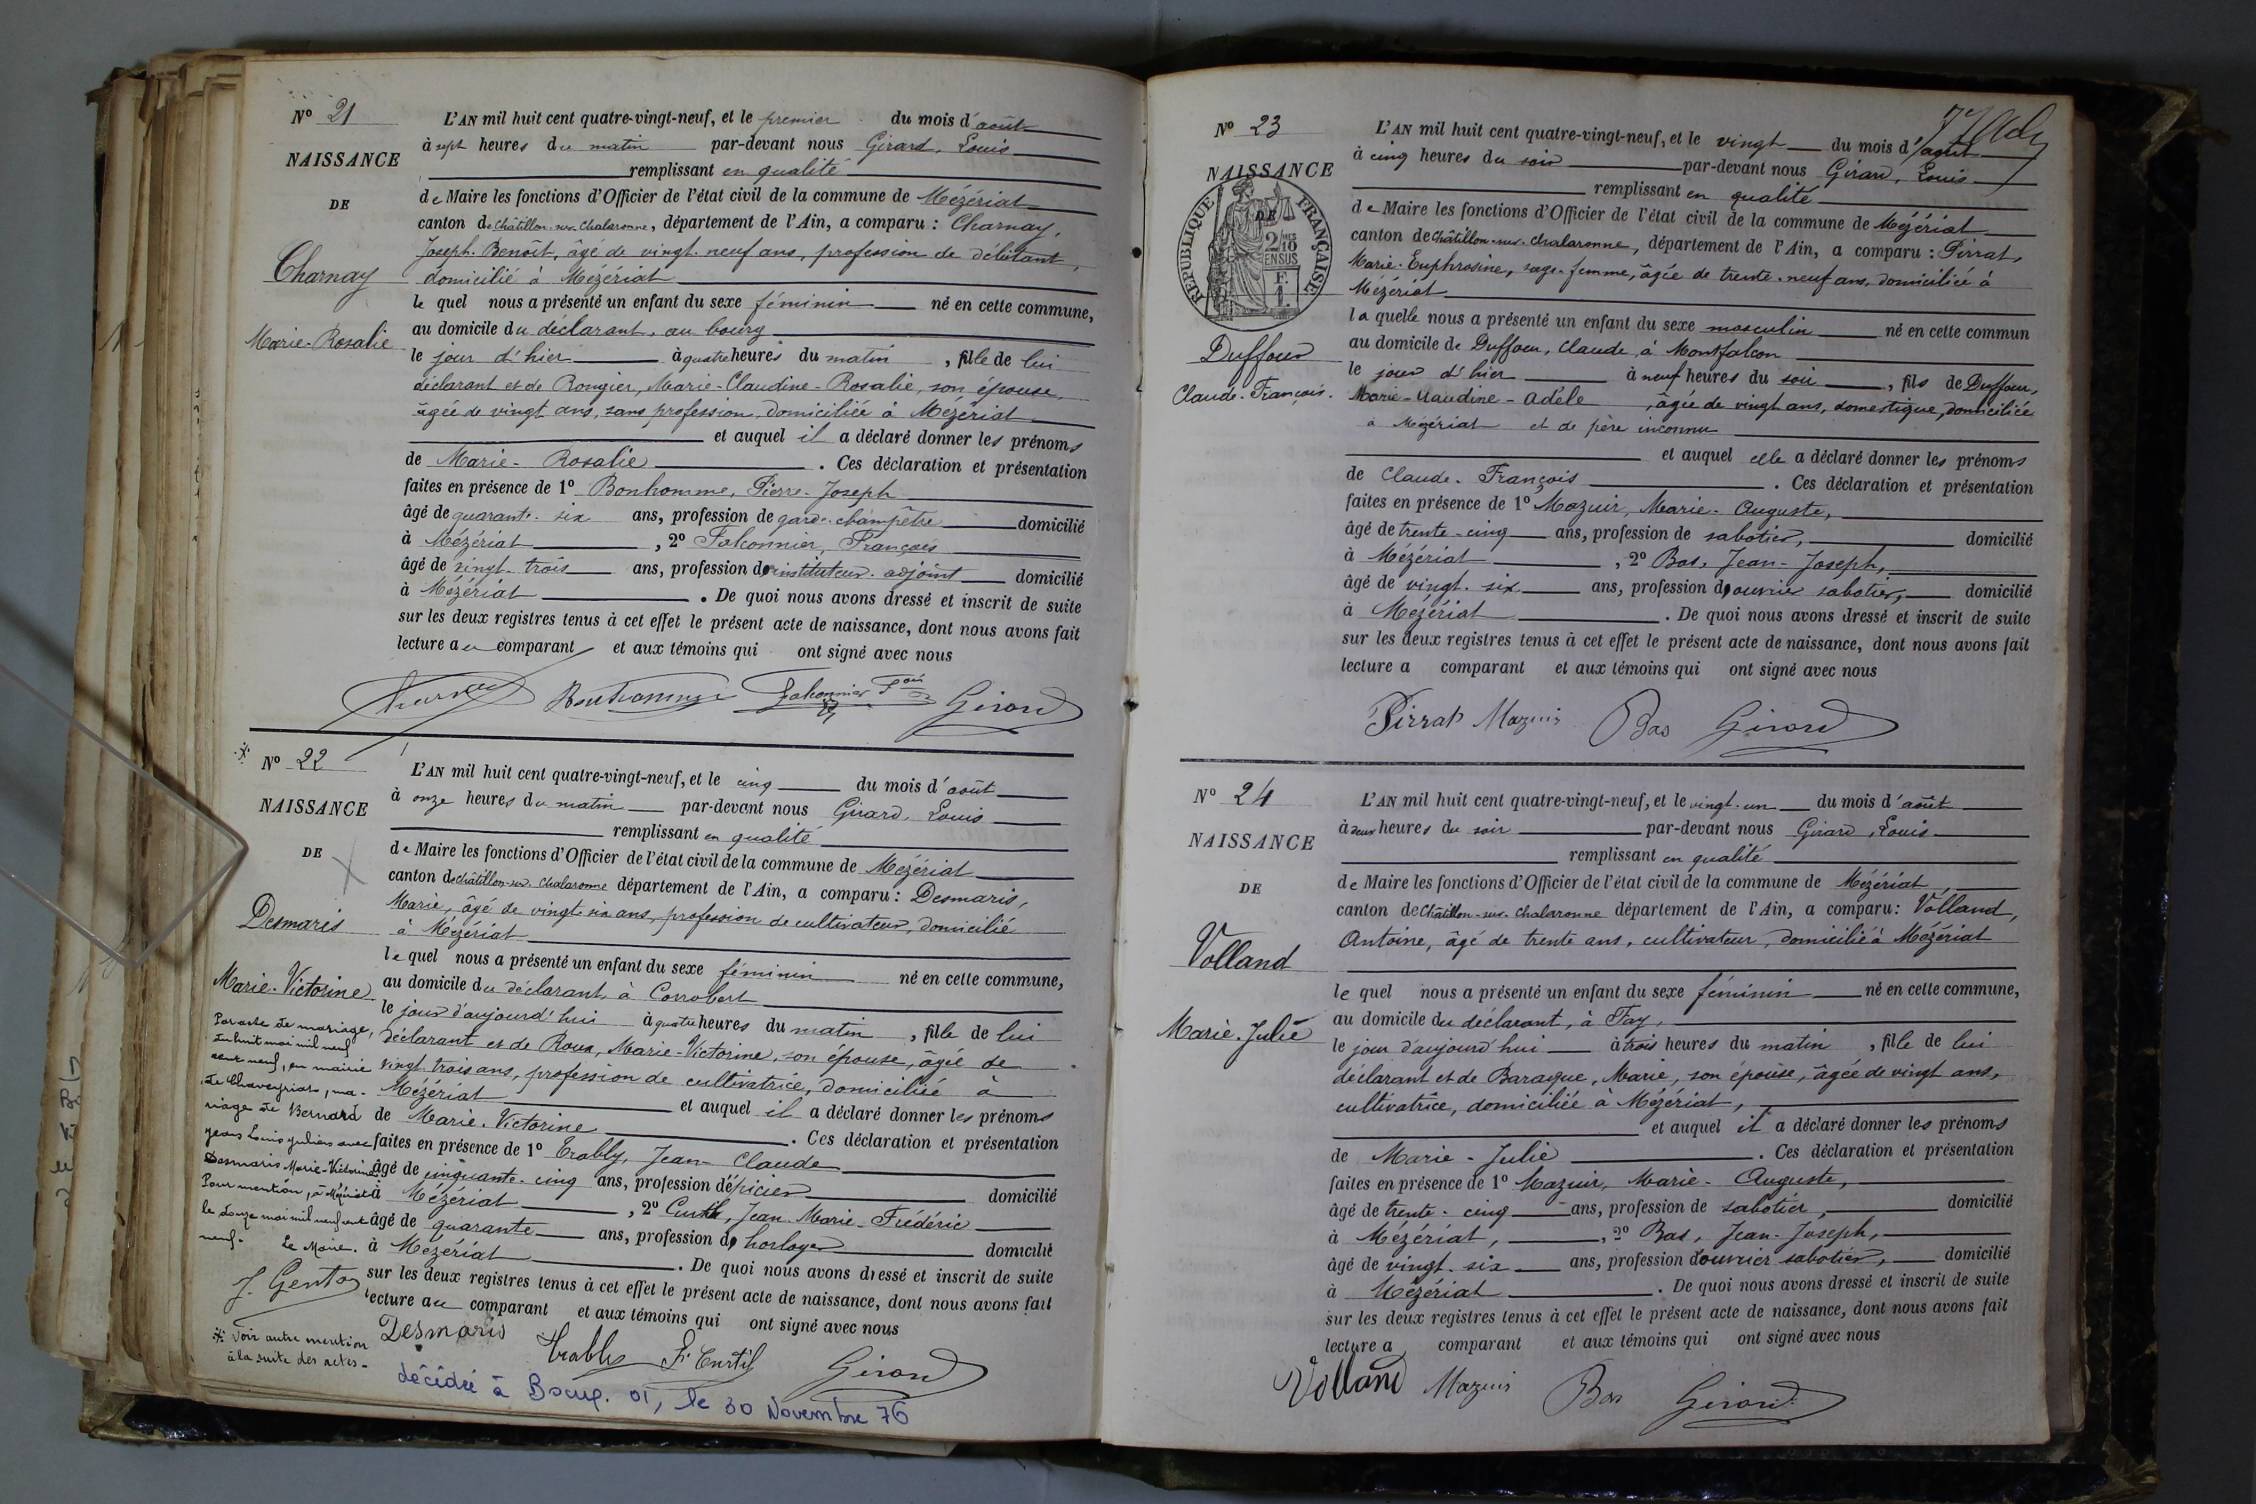 N° 21
NAISSANCE
DE
Charnay
Marie-Rosalie
L'AN mil huit cent quatre-vingt-neuf, et le premier du mois d'août
à sept heures du matin par-devant nous Girard, Louis
remplissant en qualité
de Maire les fonctions d'Officier de l'état civil de la commune de Mézériat
canton de Châtillon-sur-Chalaronne, département de l'Ain, a comparu : Charnay,
Joseph-Benoît, âgé de vingt-neuf ans, profession de débitant,
domicilié à Mézériat
le quel nous a présenté un enfant du sexe féminin né en cette commune,
au domicile du déclarant, au bourg
le jour d'hier à quatre heures du matin, fille de lui
déclarant et de Rongier, Marie-Claudine-Rosalie, son épouse,
âgée de vingt ans, sans profession, domiciliée à Mézériat
et auquel il a déclaré donner les prénoms
de Marie-Rosalie. Ces déclaration et présentation
faites en présence de 1° Bonhomme, Pierre-Joseph
âgé de quarante-six ans, profession de garde-champêtre domicilié
à Mézériat, 2° Falconnier, François
âgé de vingt-trois ans, profession d'instituteur-adjoint domicilié
à Mézériat. De quoi nous avons dressé et inscrit de suite
sur les deux registres tenus à cet effet le présent acte de naissance, dont nous avons fait
lecture au comparant et aux témoins qui ont signé avec nous
Charnay Bonhomme Falconnier Fçois Girard
N° 22
NAISSANCE
DE
Desmaris
Marie-Victorine
L'AN mil huit cent quatre-vingt-neuf, et le cinq du mois d'août
à onze heures du matin par-devant nous Girard, Louis
remplissant en qualité
de Maire les fonctions d'Officier de l'état civil de la commune de Mézériat
canton de Châtillon-sur-Chalaronne département de l'Ain, a comparu : Desmaris,
Marie, âgé de vingt-six ans, profession de cultivateur, domicilié
à Mézériat
le quel nous a présenté un enfant du sexe féminin né en cette commune,
au domicile du déclarant, à Corrobert
le jour d'aujourd'hui à quatre heures du matin, fille de lui
déclarant et de Roux, Marie-Victorine, son épouse, âgée de
vingt-trois ans, profession de cultivatrice, domiciliée à
Mézériat et auquel il a déclaré donner les prénoms
de Marie-Victorine. Ces déclaration et présentation
faites en présence de 1° Trably, Jean-Claude
âgé de cinquante-cinq ans, profession d'épicier domicilié
à Mézériat, 2° Curtil, Jean-Marie-Frédéric
âgé de quarante ans, profession d'horloger domicilié
à Mézériat. De quoi nous avons dressé et inscrit de suite
sur les deux registres tenus à cet effet le présent acte de naissance, dont nous avons fait
lecture au comparant et aux témoins qui ont signé avec nous
Desmaris Trably F. Curtil Girard
Par acte de mariage,
du huit mai mil neuf
cent neuf, en mairie
de Chaveyriat, ma-
riage de Bernard
Jean Louis Julien avec
Desmaris Marie-Victorine
Pour mention, à Mézériat
le douze mai mil neuf cent
neuf. Le Maire.
J. Gento
* Voir autre mention
à la suite des actes.
décédée à Bourg. 01, le 30 Novembre 76
N° 23
NAISSANCE
DE
REPUBLIQUE FRANÇAISE
Duffour
Claude-François.
L'AN mil huit cent quatre-vingt-neuf, et le vingt du mois d'août
à cinq heures du soir par-devant nous Girard, Louis
remplissant en qualité
de Maire les fonctions d'Officier de l'état civil de la commune de Mézériat
canton de Châtillon-sur-Chalaronne, département de l'Ain, a comparu : Pirrat,
Marie-Euphrosine, sage-femme, âgée de trente-neuf ans, domiciliée à
Mézériat
la quelle nous a présenté un enfant du sexe masculin né en cette commun
au domicile de Duffour, Claude, à Montfalcon
le jour d'hier à neuf heures du soir, fils de Duffour,
Marie-Claudine-Adèle, âgée de vingt ans, domestique, domiciliée
à Mézériat et de père inconnu
et auquel elle a déclaré donner les prénoms
de Claude-François. Ces déclaration et présentation
faites en présence de 1° Mazuir, Marie-Auguste,
âgé de trente-cinq ans, profession de sabotier, domicilié
à Mézériat, 2° Bas, Jean-Joseph,
âgé de vingt-six ans, profession d'ouvrier sabotier, domicilié
à Mézériat. De quoi nous avons dressé et inscrit de suite
sur les deux registres tenus à cet effet le présent acte de naissance, dont nous avons fait
lecture a comparant et aux témoins qui ont signé avec nous
Pirrat Mazuir Bas Girard
N° 24
NAISSANCE
DE
Volland
Marie-Julie
L'AN mil huit cent quatre-vingt-neuf, et le vingt-un du mois d'août
à deux heures du soir par-devant nous Girard, Louis
remplissant en qualité
de Maire les fonctions d'Officier de l'état civil de la commune de Mézériat,
canton de Châtillon-sur-Chalaronne département de l'Ain, a comparu : Volland,
Antoine, âgé de trente ans, cultivateur, domicilié à Mézériat
le quel nous a présenté un enfant du sexe féminin né en cette commune,
au domicile du déclarant, à Fay,
le jour d'aujourd'hui à trois heures du matin, fille de lui
déclarant et de Baraque, Marie, son épouse, âgée de vingt ans,
cultivatrice, domiciliée à Mézériat,
et auquel il a déclaré donner les prénoms
de Marie-Julie. Ces déclaration et présentation
faites en présence de 1° Mazuir, Marie-Auguste,
âgé de trente-cinq ans, profession de sabotier, domicilié
à Mézériat, 2° Bas, Jean-Joseph,
âgé de vingt-six ans, profession d'ouvrier sabotier, domicilié
à Mézériat. De quoi nous avons dressé et inscrit de suite
sur les deux registres tenus à cet effet le présent acte de naissance, dont nous avons fait
lecture a comparant et aux témoins qui ont signé avec nous
Volland Mazuir Bas Girard